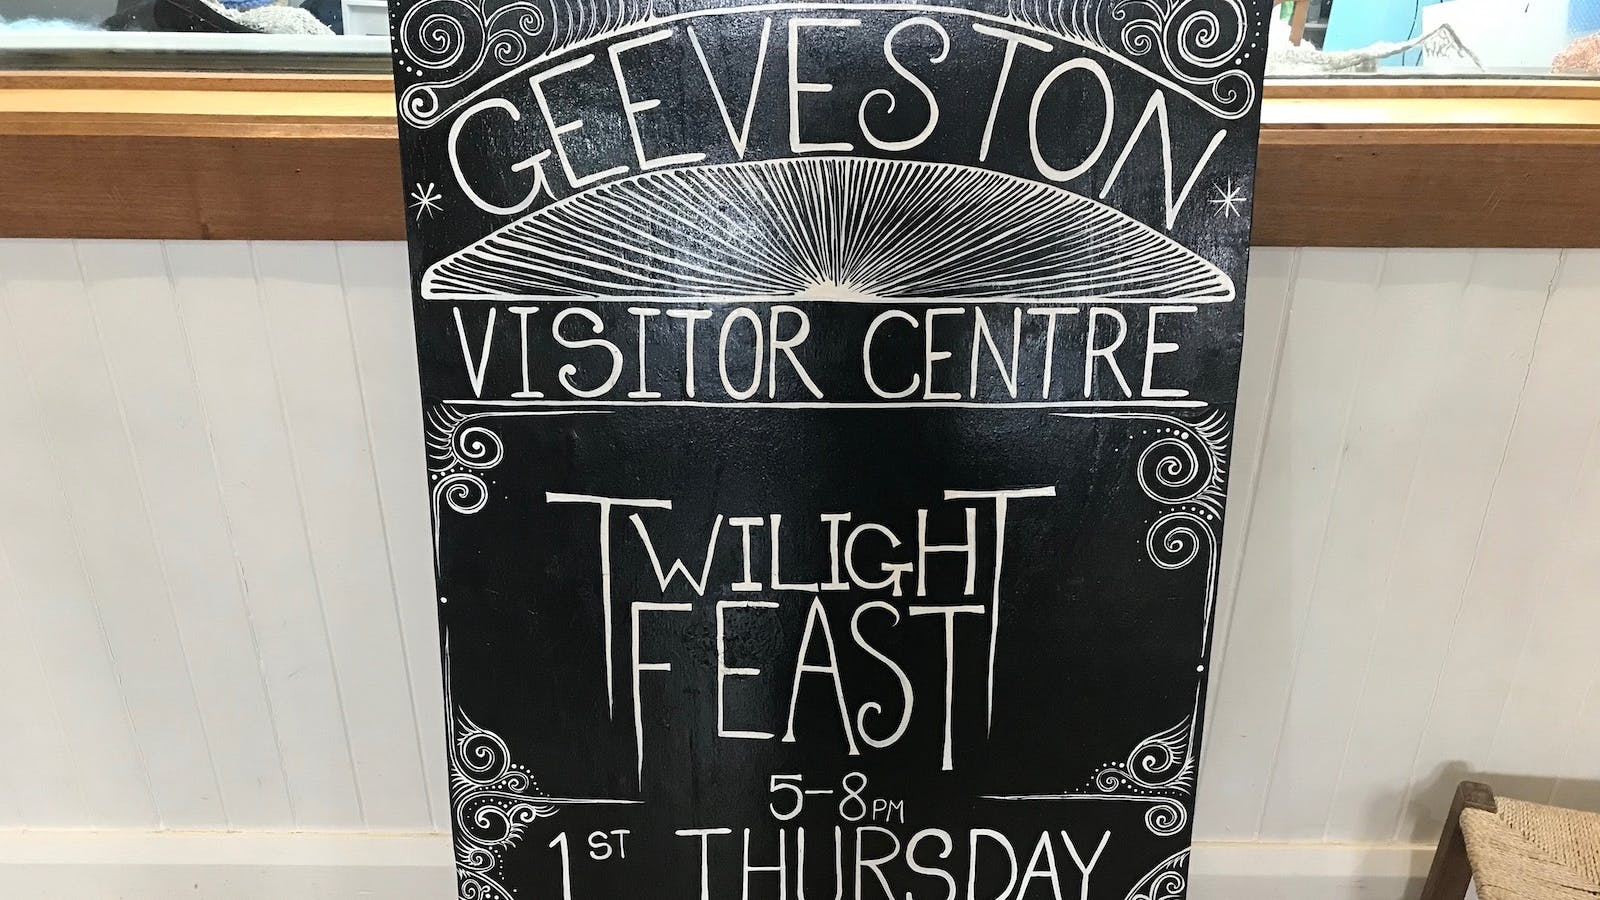 GEEVESTON
VISITOR CENTRE
TWILIGHT
FEAST
5-8PM
1ST THURSDAY